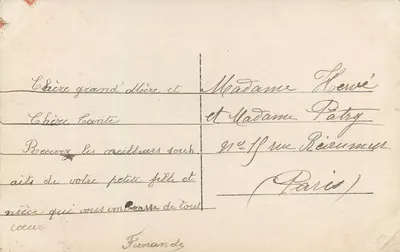 Chère grand' Mère et
Chère Tante
Recevez les meilleurs souh
aits de votre petite fille et
nièce qui vous embrasse de tout
cœur
Fernande
Madame Hervé
et Madame Patry
No 15 rue Réaumur
(Paris)